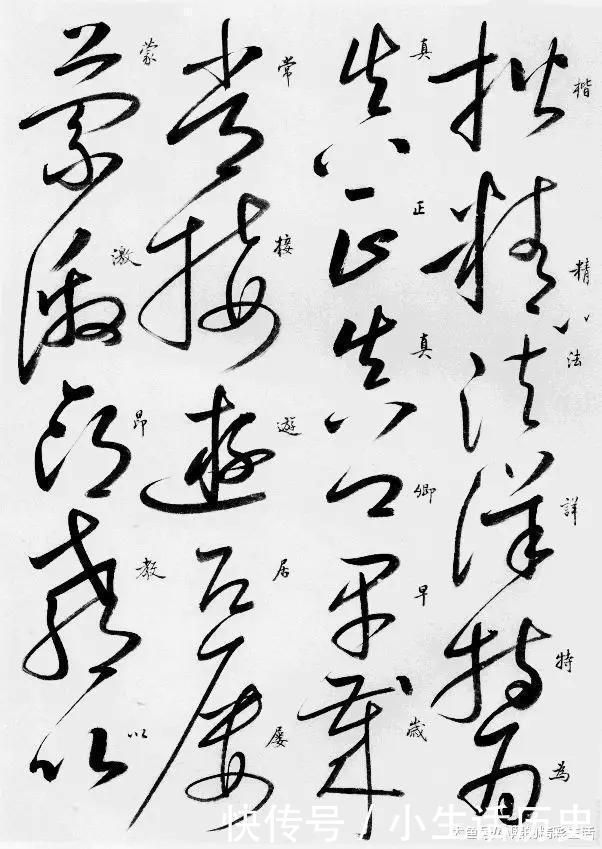 楷精法詳特為
真正真卿早歲
常接遊居屢
蒙激昂教以
快传号 / 小生活历史